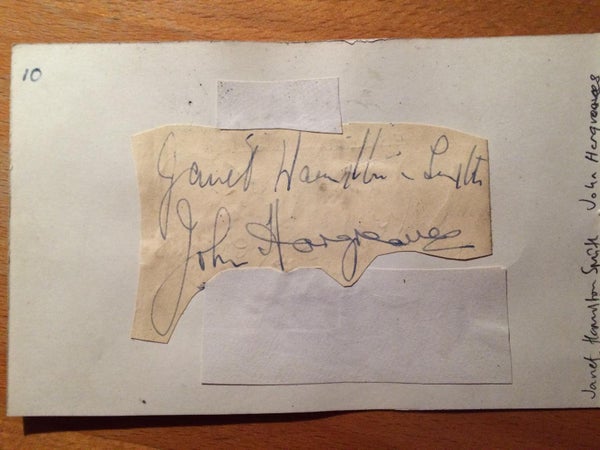 10
Janet Hamilton-Smith
John Hargreaves
Janet Hamilton Smith. John Hargreaves